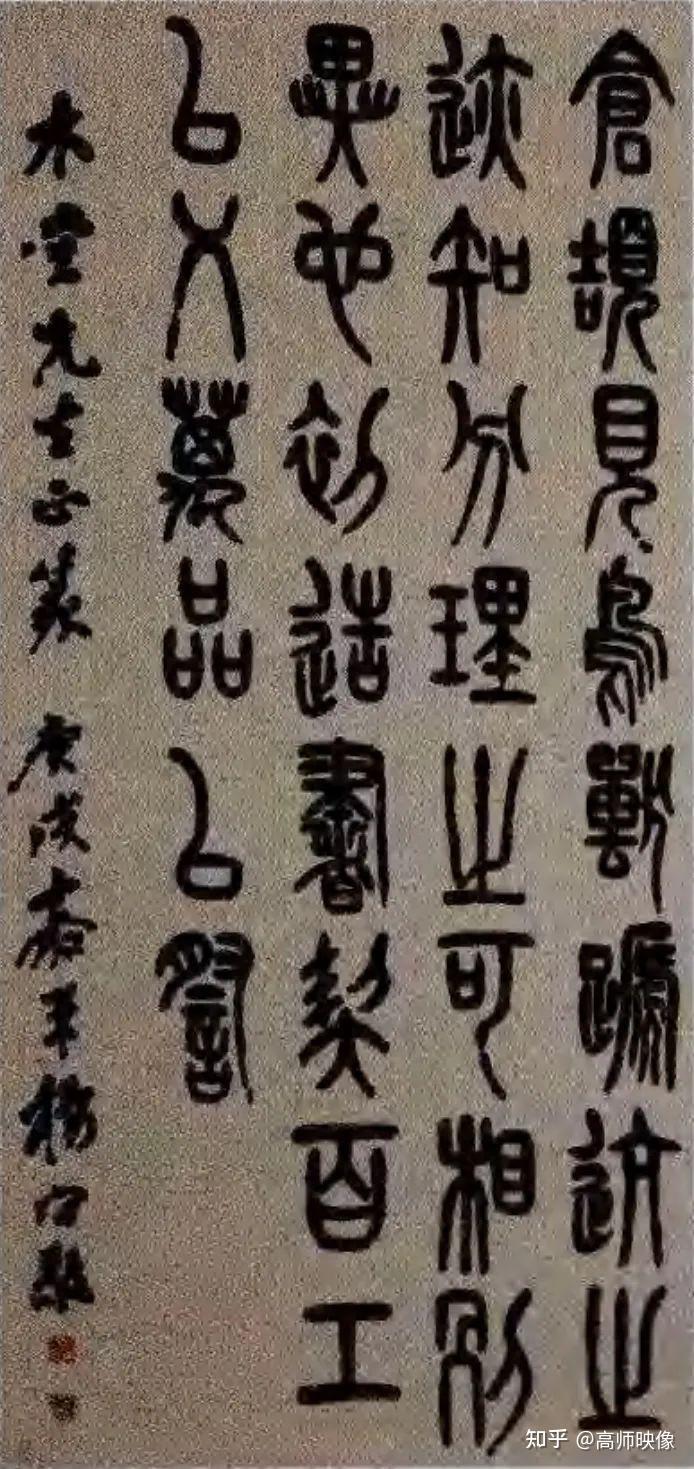 倉頡見鳥獸蹏迒之
迹知分理之可相別
異也初造書契百工
以乂萬品以詧
木堂先生正篆 庚戌嘉平楊
知乎 @高师映像